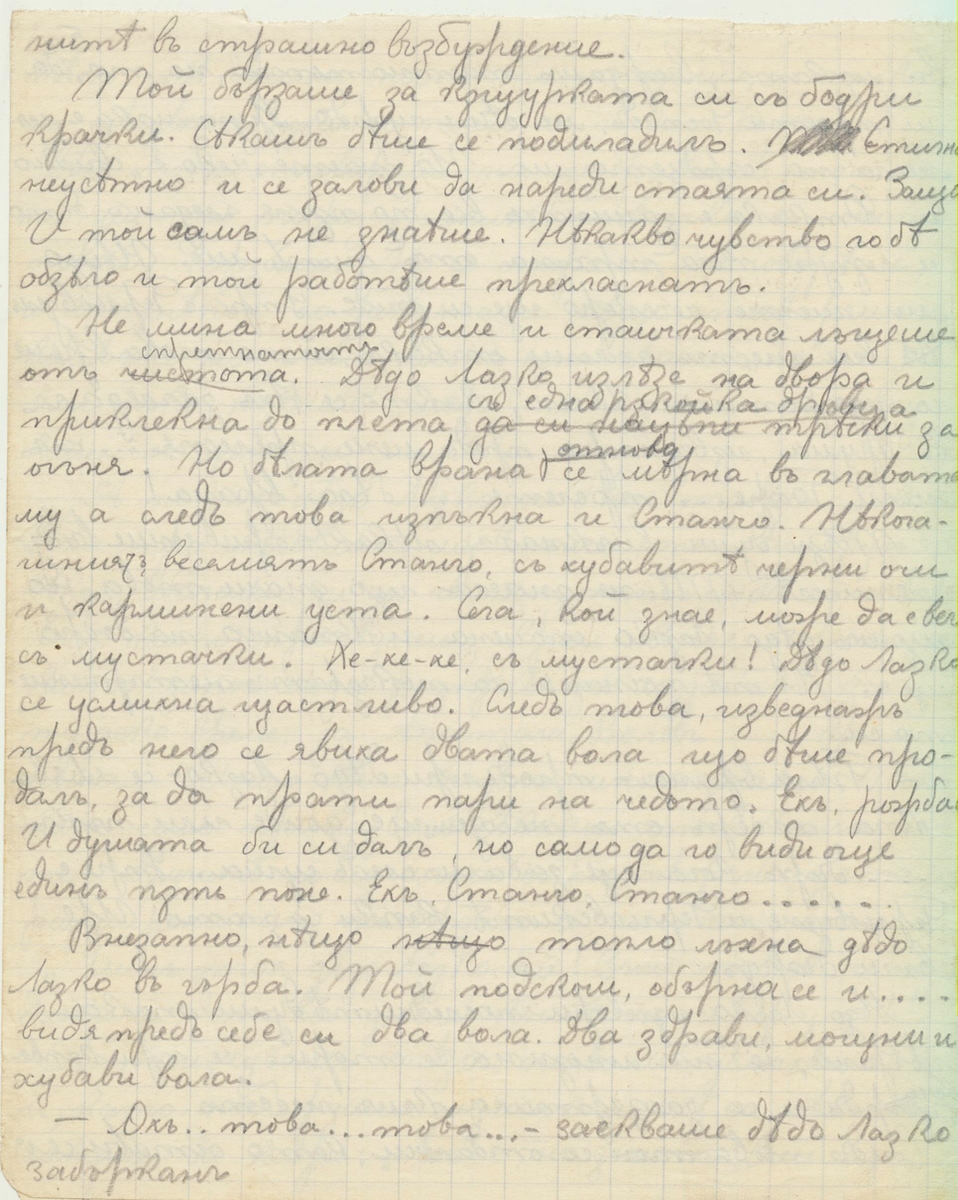 нитѣ въ страшно възбуждение.
Той бързаше за къщурката си съ бодри
крачки. Сѣкашъ бѣше се подмладилъ. Стигна
неусѣтно и се залови да нареди стаята си. Защо
И той самъ не знаѣше. Нѣкакво чувство го бѣ
обзѣло и той работѣше прехласнатъ.
Не мина много време и стаичката лъщеше
спретнатость
отъ чистота. Дѣдо Лазко излѣзе на двора и
съ една рѫкойка дръвца
приклекна до плета да си нацѣпи трѣски за
отново
огъня. Но бѣлата врана се мѣрна въ главата
му а следъ това изпъкна и Станчо. Нѣкога-
шниятъ веселиятъ Станчо, съ хубавитѣ черни очи
и карминени уста. Сега, кой знае, може да е вече
съ мустачки. Хе-хе-хе, съ мустачки! Дѣдо Лазко
се усмихна щастливо. Следъ това, изведнажъ
предъ него се явиха двата вола що бѣше про-
далъ, за да прати пари на чедото. Ехъ, рожба
И душата би си далъ, но само да го види още
единъ пѫть поне. Ехъ, Станчо, Станчо.......
Внезапно, нѣщо нѣщо топло лъхна дѣдо
Лазко въ гърба. Той подскочи, обърна се и....
видя предъ себе си два вола. Два здрави, мощни и
хубави вола.
— Охъ.. това...това...- заекваше дѣдо Лазко
забърканъ